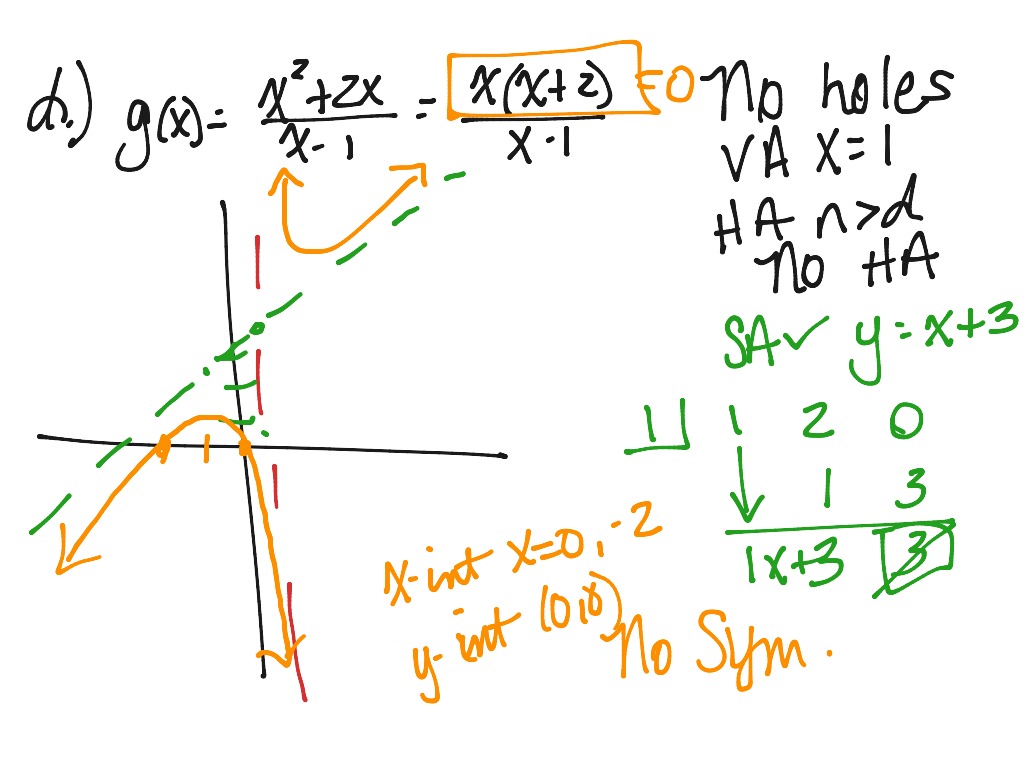 d.) g(x) = x²+2x / x-1 = x(x+2) / x-1 =0
No holes
VA x=1
HA n>d
No HA
SA✓ y=x+3
1 1 2 0
1 3
1x+3 3
x-int x=0,-2
y-int (0,0)
No Sym.